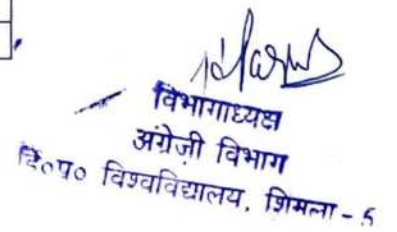 विभागाध्यक्ष
अंग्रेज़ी विभाग
हि०प्र० विश्वविद्यालय, शिमला - 5